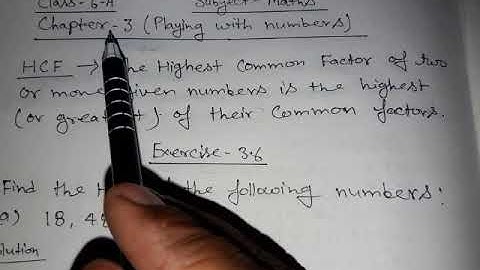 Class - 6-A Subject - Maths
Chapter - 3 (Playing with numbers)
HCF → The Highest Common Factor of two
or more given numbers is the highest
(or greatest) of their common factors.
Exercise - 3.6
Find the H the following numbers:
a) 18, 4
Solution